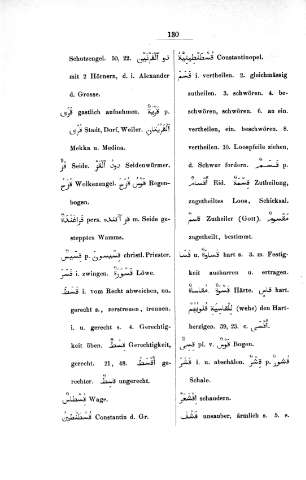 130
Schutzengel. 50, 22. ذو القرنين
mit 2 Hörnern, d. i. Alexander
d. Grosse.
قرى gastlich aufnehmen. قرية p.
قرى Stadt, Dorf, Weiler. القريتان
Mekka u. Medina.
قز Seide. دود القز Seidenwürmer.
قزح Wolkenengel. قوس قزح Regen-
bogen.
قزاغند pers. m Seide ge-
stepptes Wamms.
قسيس p. قسيسون christl. Priester.
قسر i. zwingen. قسورة Löwe.
قسط i. vom Recht abweichen, un-
gerecht s., zerstreuen, trennen.
i. u. gerecht s. 4. Gerechtig-
keit üben. قسط Gerechtigkeit,
gerecht. 21, 48. أقسط ge-
rechter. قاسط ungerecht.
قسطاس Wage.
قسطنطين Constantin d. Gr.
قسطنطينية Constantinopel.
قسم i. verteilen. 2. gleichmässig
zuteilen. 3. schwören. 4. be-
schwören, schwören. 6. an ein.
verteilen, ein. beschwören. 8.
verteilen. 10. Loospfeile ziehen,
d. Schwur fordern. قسم p.
أقسام Eid. قسمة Zuteilung,
zugeteiltes Loos, Schicksal.
قاسم Zutheiler (Gott). مقسوم
zugeteilt, bestimmt.
قسا u. قسوة hart s. 3. m. Festig-
keit ausharren u. ertragen.
قاس hart. قسوة Härte. مقاساة
للقاسية قلوبهم (wehe) den Hart-
herzigen. 39, 23. c. أقسى.
قسى pl. v. قوس Bogen.
قشر i. u. abschälen. قشر p. قشور
Schale.
اقشعر schaudern.
قشف unsauber, ärmlich s. 5. s.